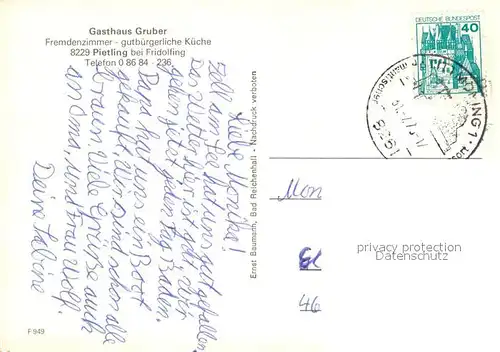 Gasthaus Gruber
Fremdenzimmer - gutbürgerliche Küche
8229 Pietling bei Fridolfing
Telefon 0 86 84 - 236
Liebe Monika!
Zell am See hat uns gut gefallen
Das Wetter hier ist gut, wir
gehen jetzt jeden Tag Baden.
Papa hat uns ein Boot
gekauft, wir sind schon alle
braun. Viele Grüße auch
an Oma, und Frau Wolf.
Deine Sabine
Ernst Baumann, Bad Reichenhall - Nachdruck verboten
DEUTSCHE BUNDESPOST
40
ING 1
Mon
46
privacy protection
Datenschutz
F 949